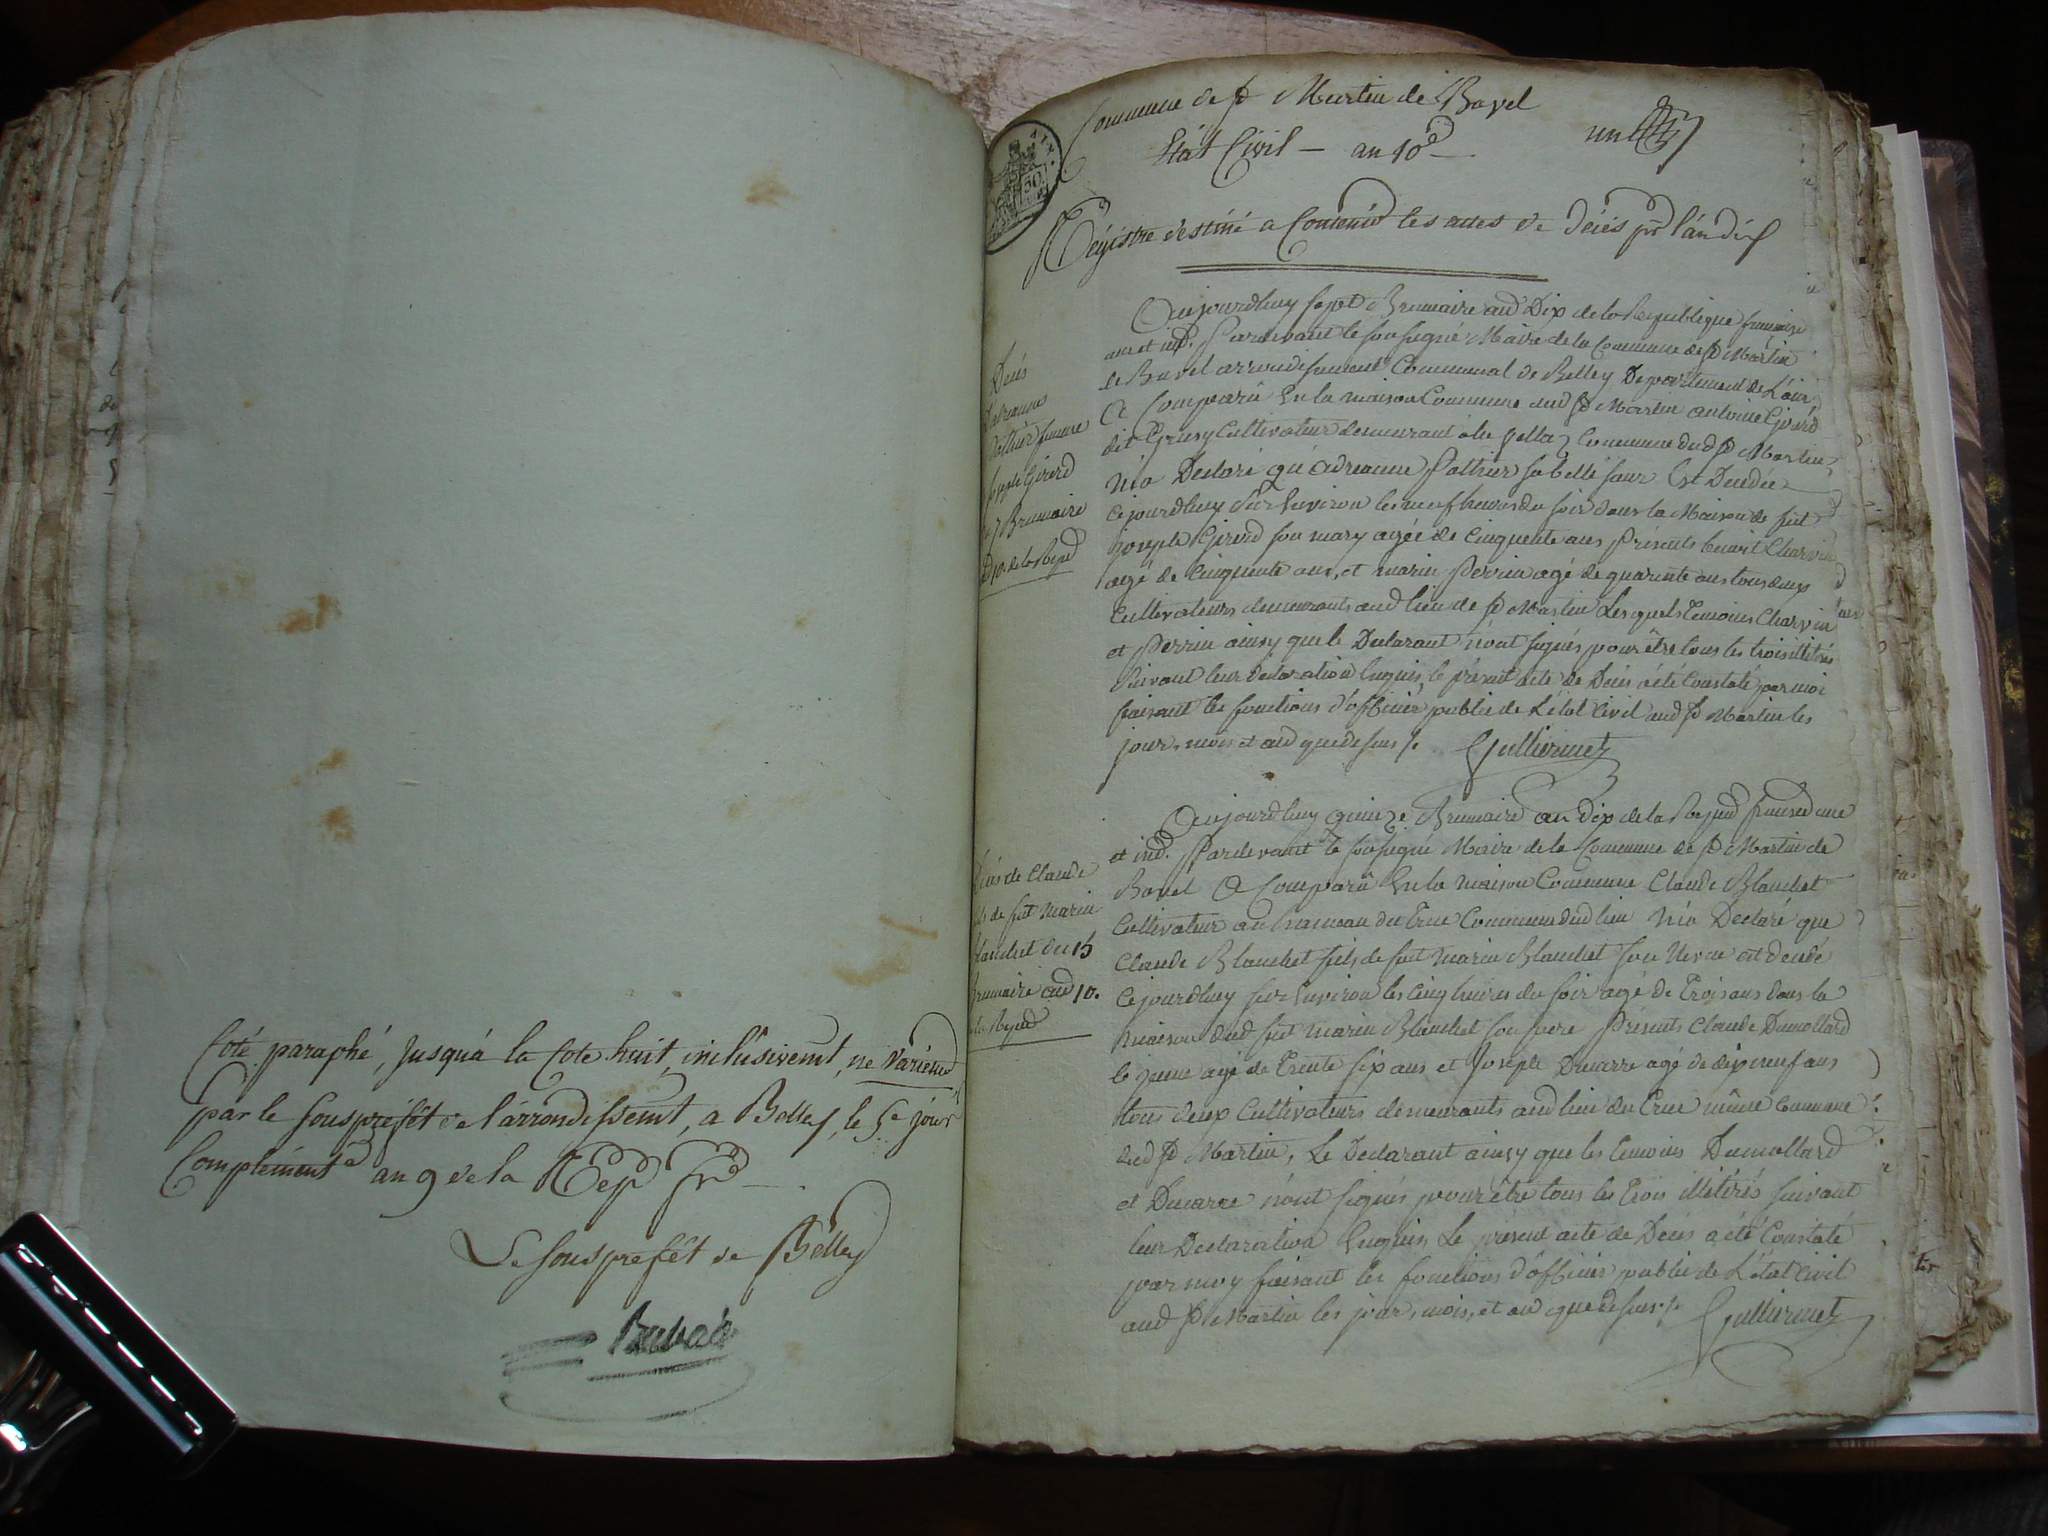 Coté, paraphé, jusqu'à la Cote huit, inclusivemt, ne varietur
par le souspréfêt de l'arrondissemt, a Belley, le 5e jour
Complément. an 9 de la Rep. fr.
Le souspréfêt de Belley
Commune de St Martin de Bavel
un
Etat Civil — an 10e —
Régistre destiné a Contenir les actes de décès pr l'an dix
Décès
femme
Joseph Girerd
7 Brumaire
10. de la Repd
Aujourdhuy sept Brumaire and Dix de la Republique française
une et ind. Pardevant le sousigné Maire de la Commune de St Martin
de Bavel arrondissement Communal de Belley Departement de L'ain
A Comparû En la maison Commune aud St Martin antoine Girerd
dit Grusy Cultivateur demeurant a Commune dud St Martin
M'a Declaré qu'adreanne Pathier sa belle soeur Est Decedée
Cejourdhuy sur Environ les neuf heures du soir dans la Maison de fut
joseph Girerd son mary agée de Cinquente ans Présents benoit Charvin
agé de Cinquente ans, et marin Perrin agé de quarente ans tous deux
Cultivateurs demeurants aud lieu de St Martin Lesquels temoins Charvin
et Perrin ainsy que le Declarant n'ont signés pour être tous les trois illitérés
suivant leur declaration Enquis, le présent acte de Décès a été Constaté par moi
faisant les fonctions d'officier public de L'état Civil aud St Martin les
jour, mois et and que dessus /. Gullierme​t
Décès de Claude
fils de fut marin
Blanchet du 15
Brumaire and 10.
de la Repud
Aujourdhuy quinze Brumaire an dix de la Repud francse une
et ind. Pardevant le sousigné Maire de la Commune de St Martin de
Bavel A Comparû En la maison Commune Claude Blanchet
Cultivateur au hameau du Crue Commune dud lieu M'a Declaré que
Claude Blanchet fils de fut marin Blanchet son Neveu est decedé
Cejourdhuy sur Environ les Cinq heures du soir agé de Trois ans dans la
maison dud fut marin Blanchet son pere Présents Claude Dumollard
le jeune agé de Trente six ans et Joseph Ducarre agé de dix neuf ans
tous deux Cultivateurs demeurants aud lieu du Crue même Commune
dud St Martin, Le Declarant ainsy que les temoins Dumollard
et Ducarre n'ont signés pour être tous les Trois illitérés suivant
leur Declaration Enquis, Le présent acte de Décès a été Constaté
par moy faisant les fonctions d'officier public de L'état Civil
aud St Martin les jour, mois, et and que dessus /. Gulliermet